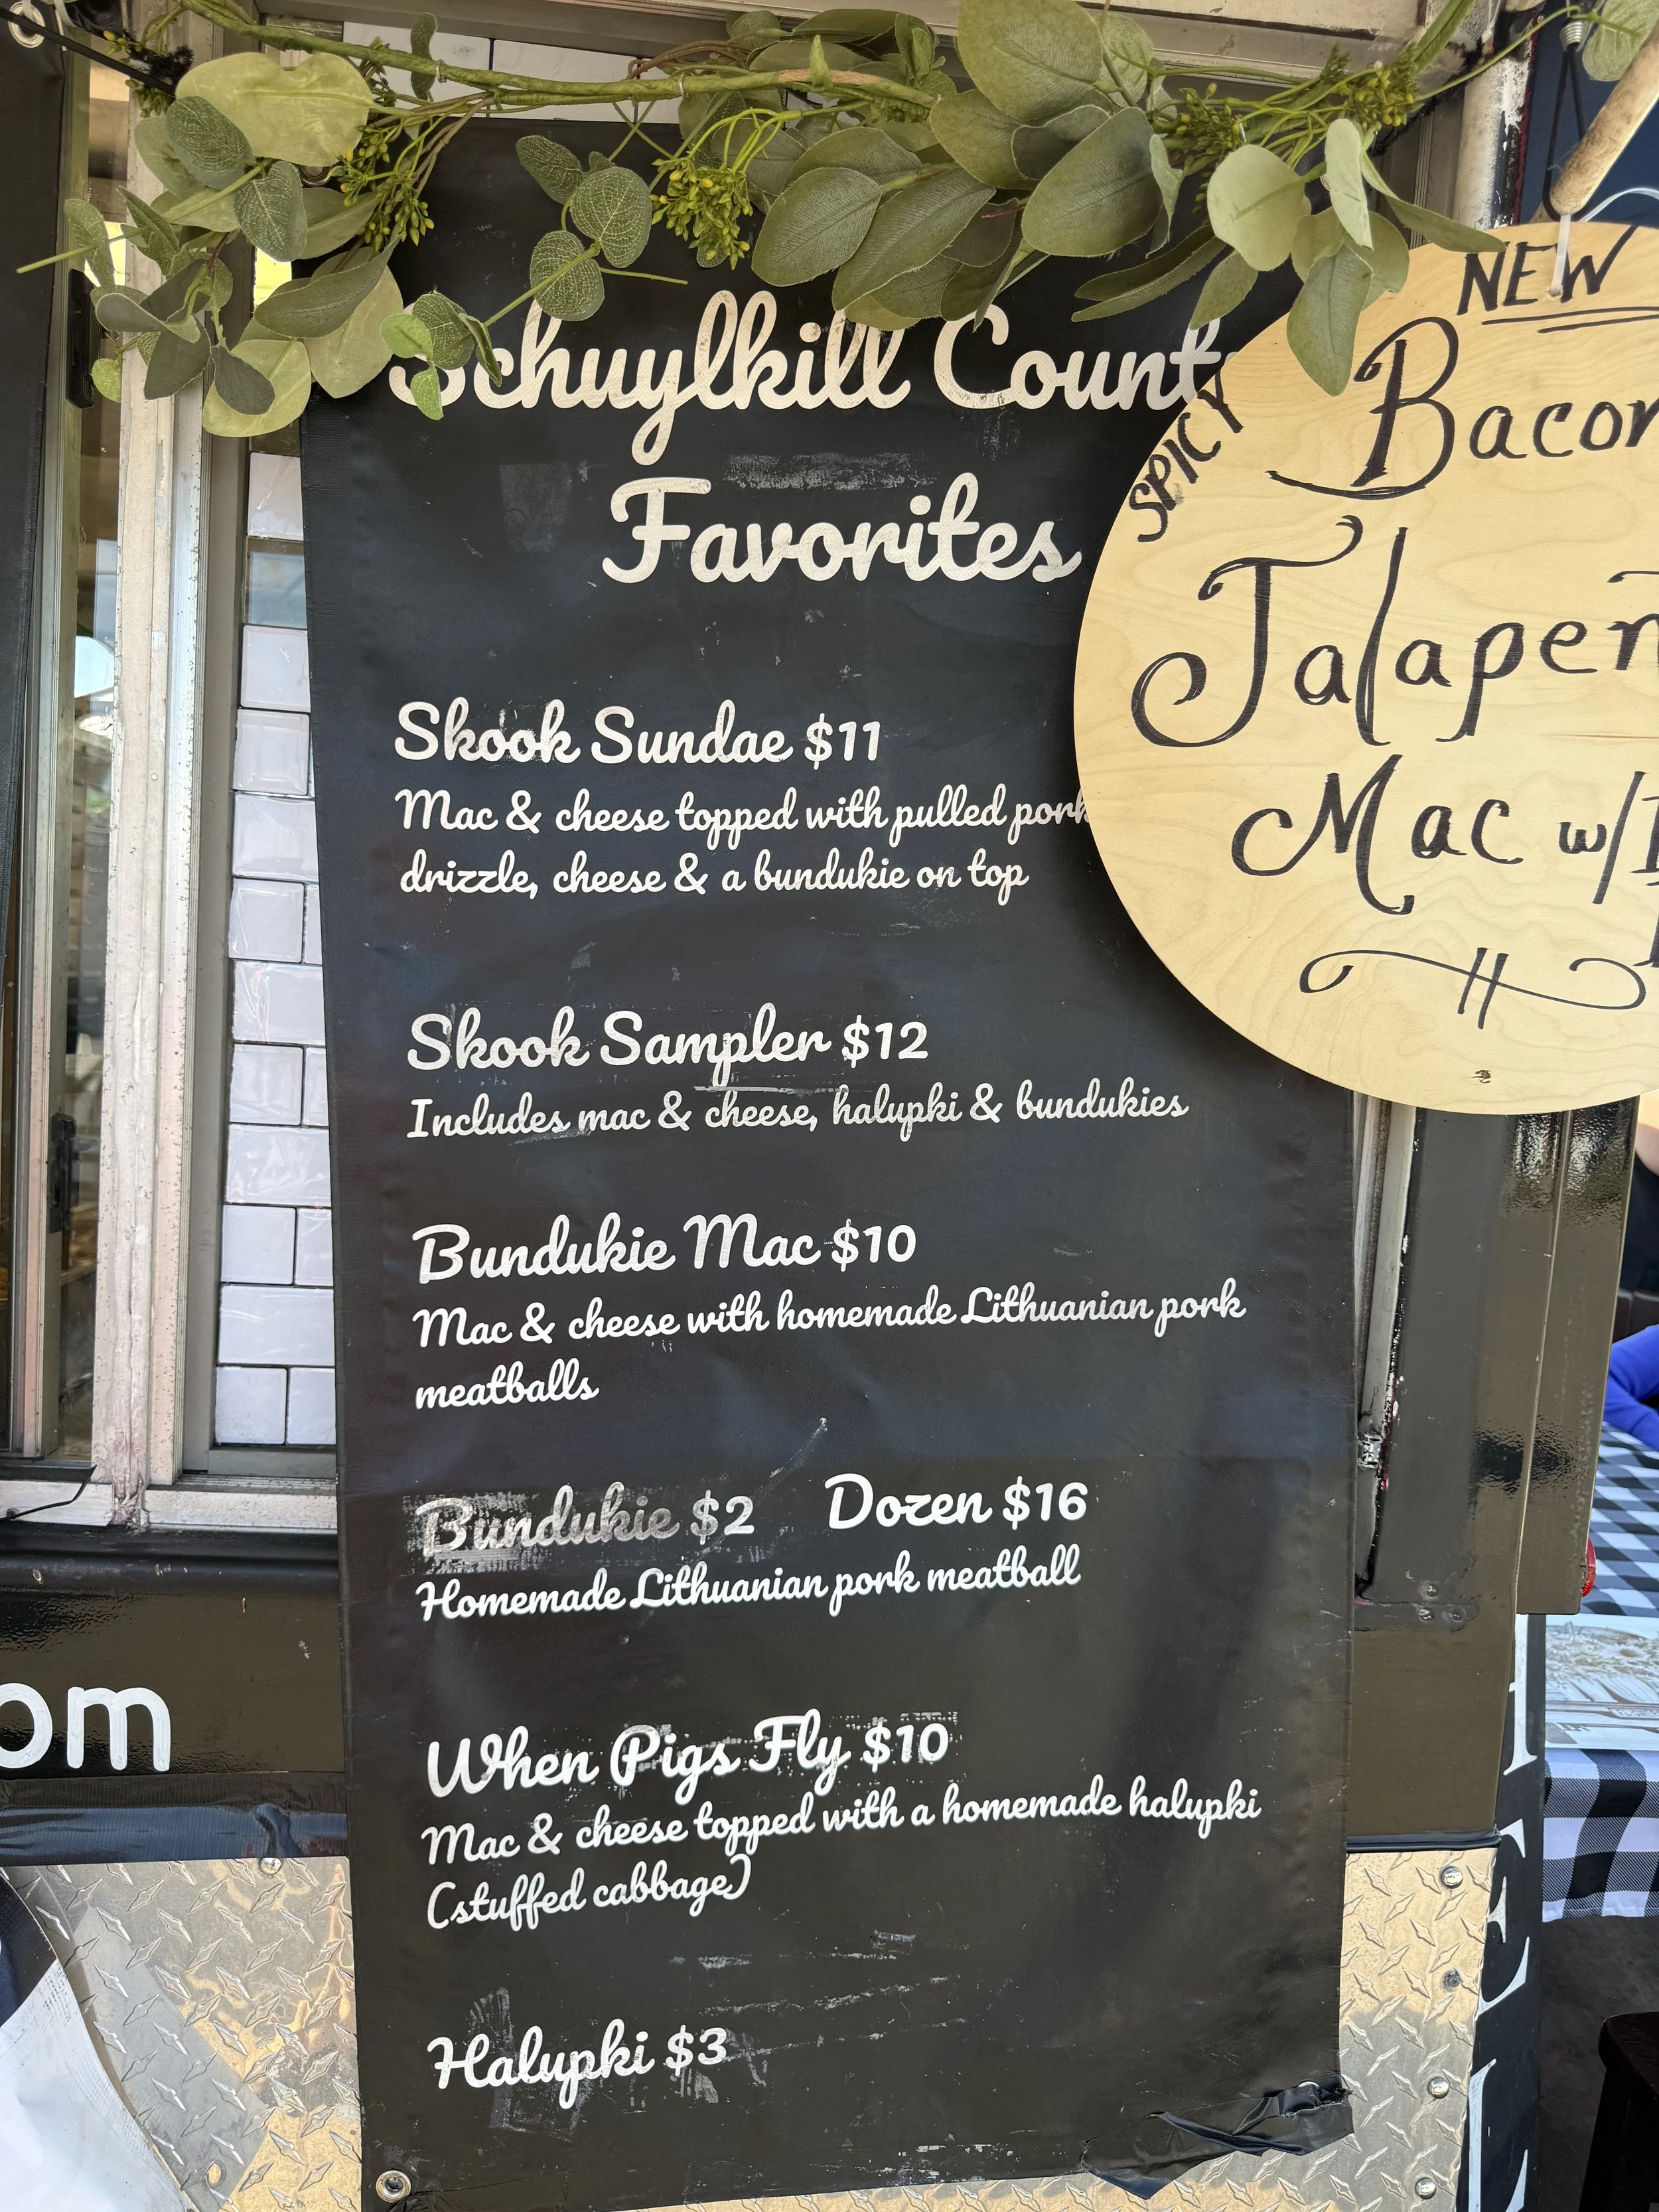 Schuylkill County
Favorites
Skook Sundae $11
Mac & cheese topped with pulled pork
drizzle, cheese & a bundukie on top
Skook Sampler $12
Includes mac & cheese, halupki & bundukies
Bundukie Mac $10
Mac & cheese with homemade Lithuanian pork
meatballs
Bundukie $2 Dozen $16
Homemade Lithuanian pork meatball
When Pigs Fly $10
Mac & cheese topped with a homemade halupki
(stuffed cabbage)
Halupki $3
NEW
SPICY
Bacon
Jalapen
Mac w/
om